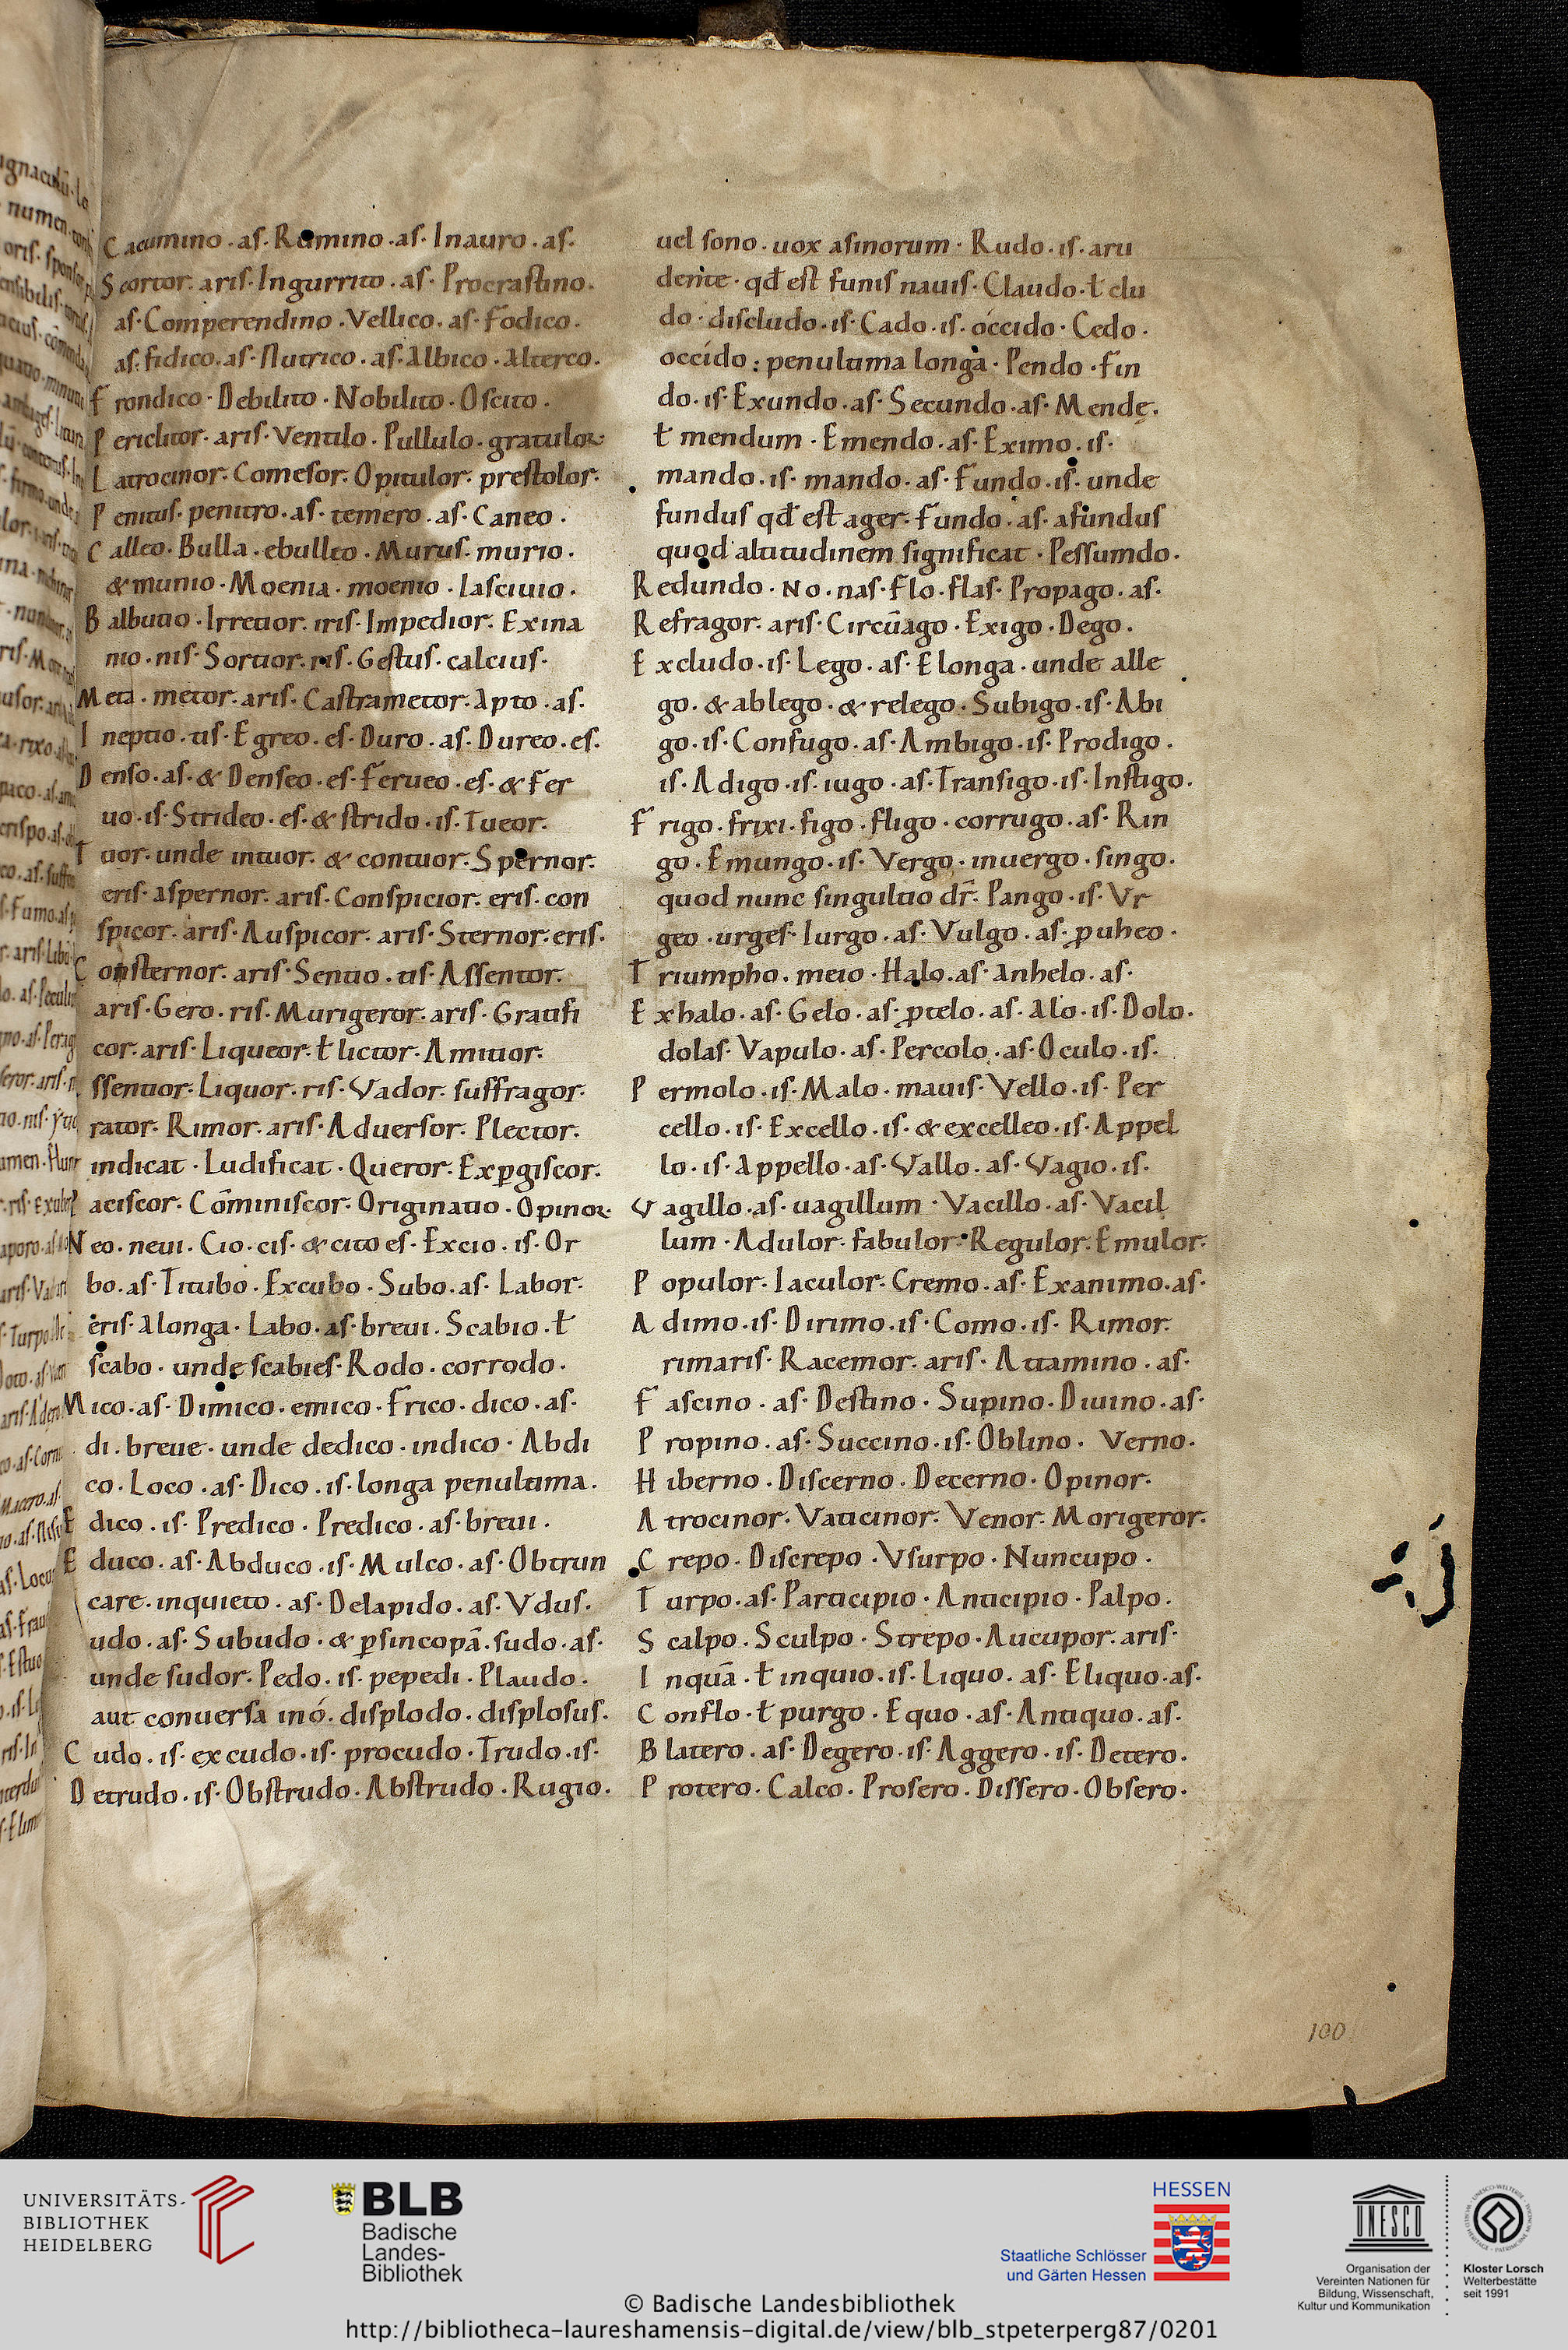 Cacumino .as. Rumino .as. Inauro .as.
Scortor. aris. Ingurrito .as. Procrastino.
as. Comperendino. Vellico. as. Fodico.
as. fidico. as. Nutrico .as. Albico. Alterco.
Frondico. Debilito. Nobilito. Oscito.
Periclitor. aris. Ventilo. Pullulo. gratulor
Latrocinor. Comesor. Opitulor. prestolor.
Penitus. penitro. as. temero .as. Caneo.
Calleo. Bulla. ebulleo. Murus. murio.
& munio. Moenia. moenio. lasciuio.
Balbutio. Irretior. iris. Impedior. Exina
nio. nis. Sortior. ris. Gestus. calcius.
Meta. metor. aris. Castrametor. Apto .as.
Ineptio. tis. Egreo. es. Duro. as. Dureo. es.
Denso. as. & Denseo. es. Ferueo. es. & Fer
uo. is. Strideo. es. & strido. is. Tueor.
Tuor. unde intuor. & contuor. Spernor.
eris. aspernor. aris. Conspicior. eris. con
spicor. aris. Auspicor. aris. Sternor. eris.
Consternor. aris. Sentio. tis. Assentor.
aris. Gero. ris. Murigeror. aris. Gratifi
cor. aris. Liqueor. ƚ lictor. Amitior.
ssentior. Liquor. ris. Vador. suffragor.
rator. Rimor. aris. Aduersor. Plector.
indicat. Ludificat. Queror. Exꝑgiscor.
Paciscor. Cōminiscor. Originatio. Opinor
Neo. neui. Cio. cis. & cito es. Excio. is. Or
bo. as. Titubo. Excubo. Subo. as. Labor.
eris. a longa. Labo. as. breui. Scabio. ƚ
scabo. unde scabies. Rodo. corrodo.
Mico. as. Dimico. emico. Frico. dico. as.
di. breue. unde dedico. indico. Abdi
co. Loco. as. Dico. is. longa penultima.
Edico. is. Predico. Predico. as. breui.
Educo. as. Abduco. is. Mulco. as. Obtrun
care. inquieto. as. Delapido. as. Vdus.
udo. as. Subudo. & ꝑ sincopā. sudo. as.
unde sudor. Pedo. is. pepedi. Plaudo.
aut conuersa in ó. displodo. displosus.
Cudo. is. excudo. is. procudo. Trudo. is.
Detrudo. is. Obstrudo. Abstrudo. Rugio.
uel sono. uox asinorum. Rudo. is. a ru
dente. qđ est funis nauis. Claudo. ƚ clu
do. discludo. is. Cado. is. óccido. Cedo.
occído: penultima longa. Pendo. Fin
do. is. Exundo. as. Secundo. as. Mendę.
ƚ mendum. Emendo. as. Eximo. is.
mando. is. mando. as. Fundo. is. unde
fundus qđ est ager. Fundo. as. a fundus
quod altitudinem significat. Pessumdo.
Redundo. No. nas. Flo. flas. Propago. as.
Refragor. aris. Circūago. Exigo. Dego.
Excludo. is. Lego. as. E longa. unde alle
go. & ablego. & relego. Subigo. is. Abi
go. is. Confugo. as. Ambigo. is. Prodigo.
is. Adigo. is. iugo. as. Transigo. is. Instigo.
Frigo. frixi. figo. fligo. corrugo. as. Rin
go. Emungo. is. Vergo. inuergo. singo.
quod nunc singultio dr̄. Pango. is. Vr
geo. urges. Iurgo. as. Vulgo. as. ꝓueho.
Triumpho. meio. Halo. as. anhelo. as.
Exhalo. as. Gelo. as. ꝓtelo. as. Alo. is. Dolo.
dolas. Vapulo. as. Percolo. as. Oculo. is.
Permolo. is. Malo. mauis. Vello. is. Per
cello. is. Excello. is. & excelleo. is. Appel
lo. is. Appello. as. Vallo. as. Vagio. is.
Vagillo. as. uagillum. Vacillo. as. Vacil
lum. Adulor. fabulor. Regulor. Emulor.
Populor. Iaculor. Cremo. as. Exanimo. as.
Adimo. is. Dirimo. is. Como. is. Rimor.
rimaris. Racemor. aris. Attamino. as.
Fascino. as. Destino. Supino. Diuino. as.
Propino. as. Succino. is. Oblino. Verno.
Hiberno. Discerno. Decerno. Opinor.
Atrocinor. Vaticinor. Venor. Morigeror.
Crepo. Discrepo. Vsurpo. Nuncupo.
Turpo. as. Participio. Anticipio. Palpo.
Scalpo. Sculpo. Strepo. Aucupor. aris.
Inquā. ƚ inquio. is. Liquo. as. Eliquo. as.
Conflo. ƚ purgo. Equo. as. Antiquo. as.
Blatero. as. Degero. is. Aggero. is. Detero.
Protero. Calco. Prosero. Dissero. Obsero.
100
UNIVERSITÄTS-
BIBLIOTHEK
HEIDELBERG
BLB
Badische
Landes-
Bibliothek
HESSEN
Staatliche Schlösser
und Gärten Hessen
UNESCO
Organisation der
Vereinten Nationen für
Bildung, Wissenschaft,
Kultur und Kommunikation
Kloster Lorsch
Welterbestätte
seit 1991
© Badische Landesbibliothek
http://bibliotheca-laureshamensis-digital.de/view/blb_stpeterperg87/0201